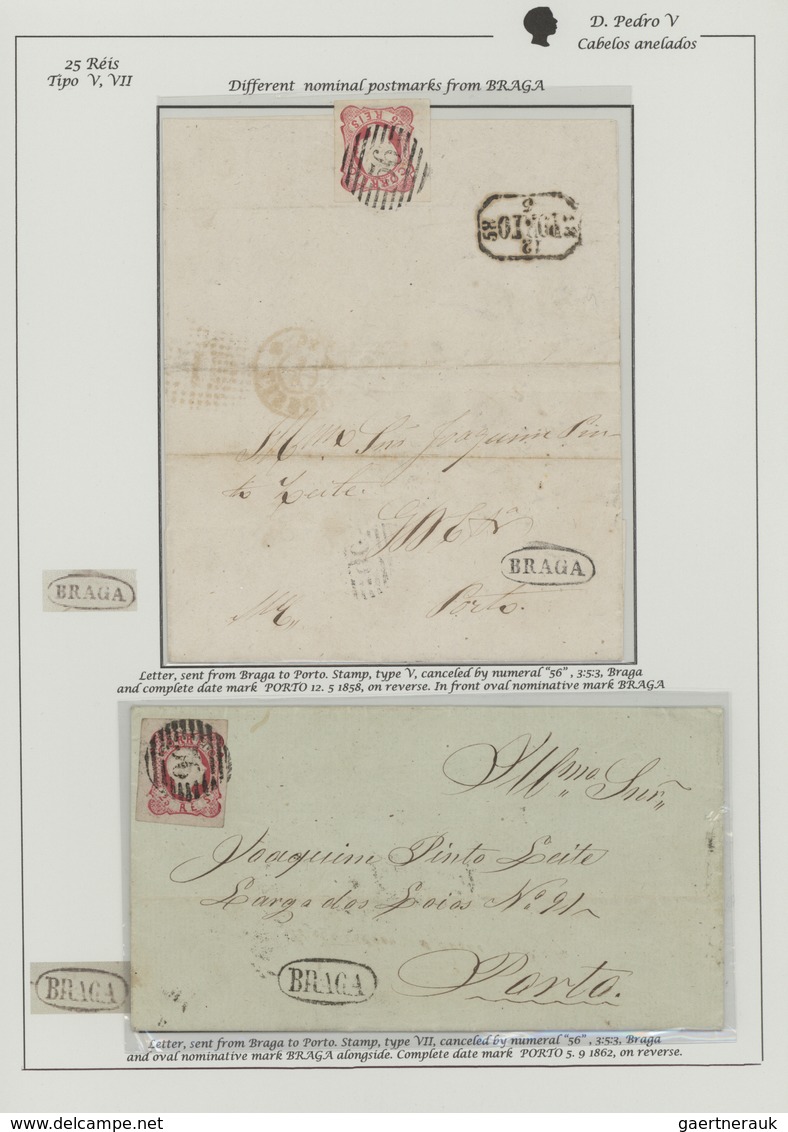 D. Pedro V
Cabelos anelados
25 Réis
Tipo V, VII
Different nominal postmarks from BRAGA
REIS
CORREIO
56
12
PORTO
5
58
Joaquim Pin-
to Leite.
BRAGA
Porto.
BRAGA
Letter, sent from Braga to Porto. Stamp, type V, canceled by numeral "56" , 3:5:3, Braga
and complete date mark PORTO 12. 5 1858, on reverse. In front oval nominative mark BRAGA
CORREIO
56
25 REIS
Snr
Joaquim Pinto Leite
Largo dos Loios Nº 91
BRAGA
Porto.
BRAGA
Letter, sent from Braga to Porto. Stamp, type VII, canceled by numeral "56" , 3:5:3, Braga
and oval nominative mark BRAGA alongside. Complete date mark PORTO 5. 9 1862, on reverse.
gaertnerauk